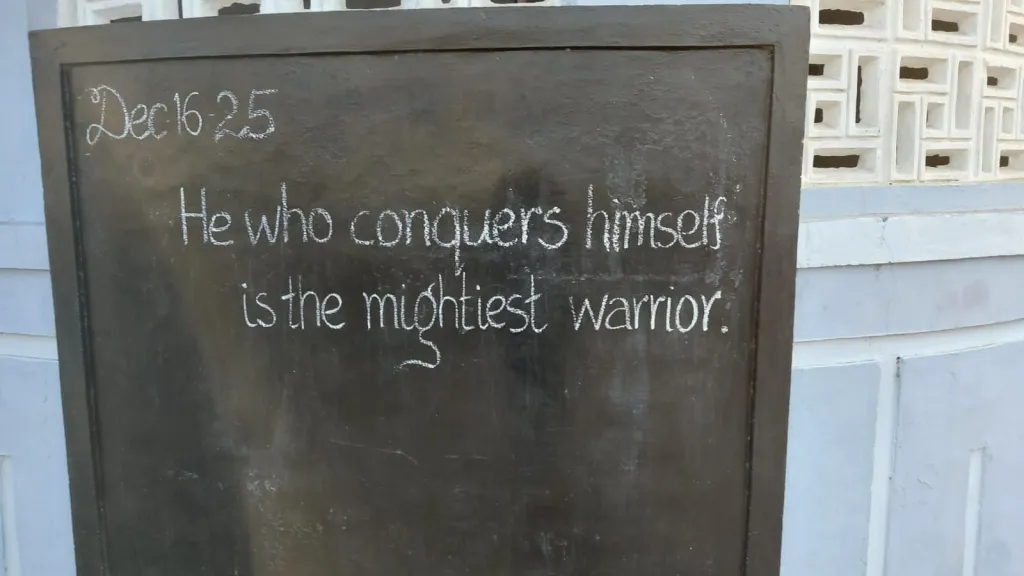 Dec 16-25
He who conquers himself
is the mightiest warrior.